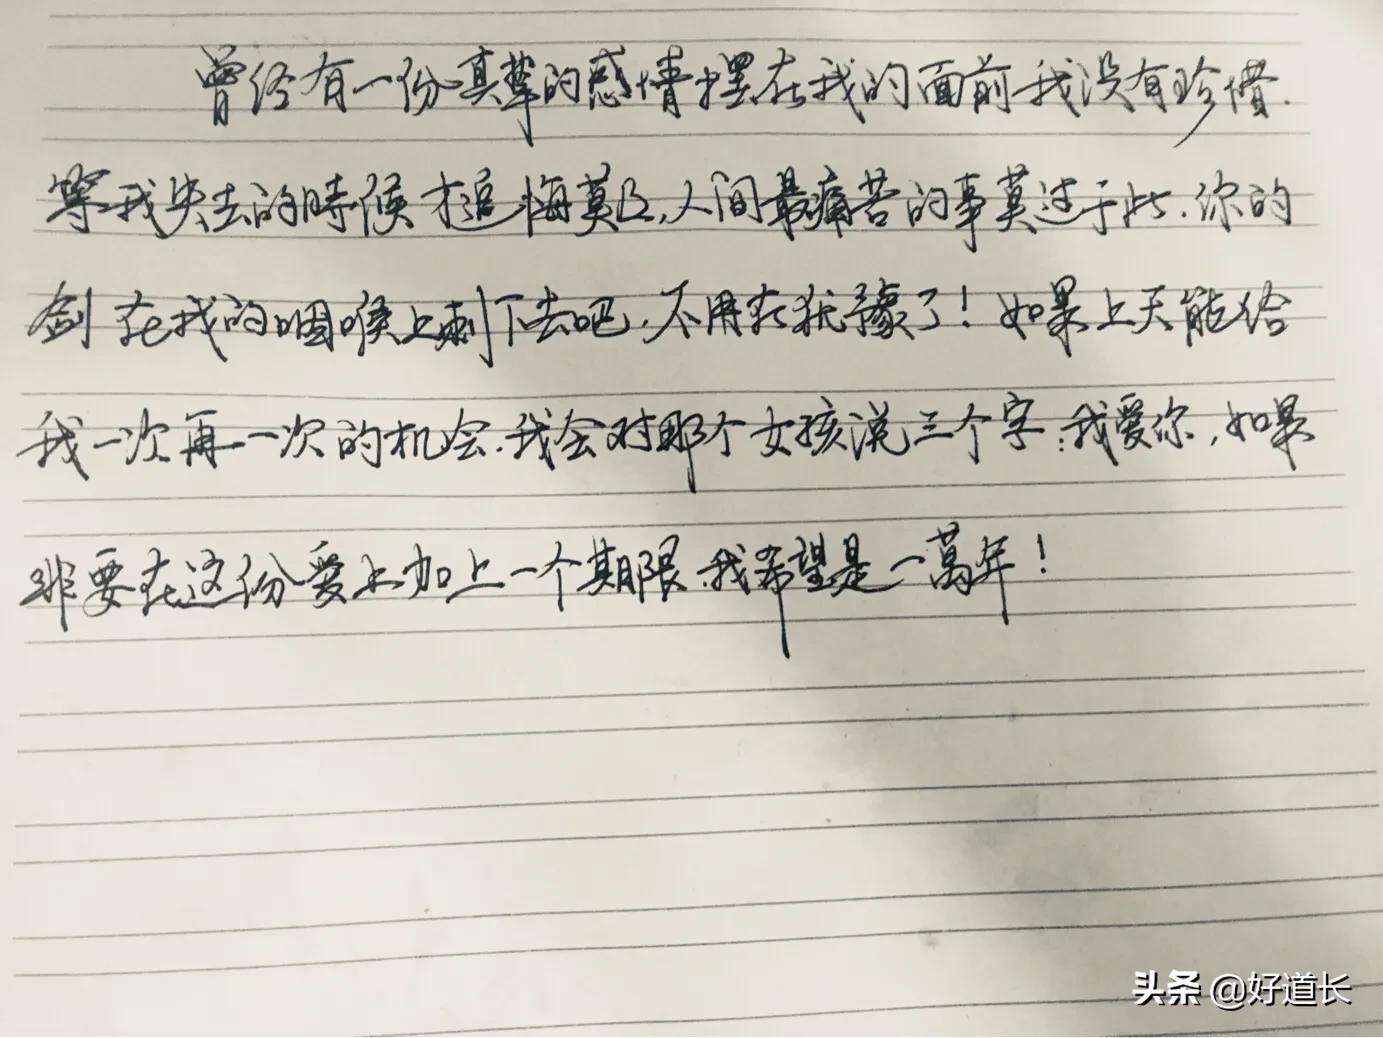 曾经有一份真挚的感情摆在我的面前我没有珍惜.
等我失去的時候才追悔莫及,人间最痛苦的事莫过于此.你的
剑在我的咽喉上刺下去吧.不用在犹豫了!如果上天能给
我一次再一次的机会.我会对那个女孩说三个字:我爱你,如果
非要在这份爱上加上一个期限.我希望是一萬年!
头条 @好道长